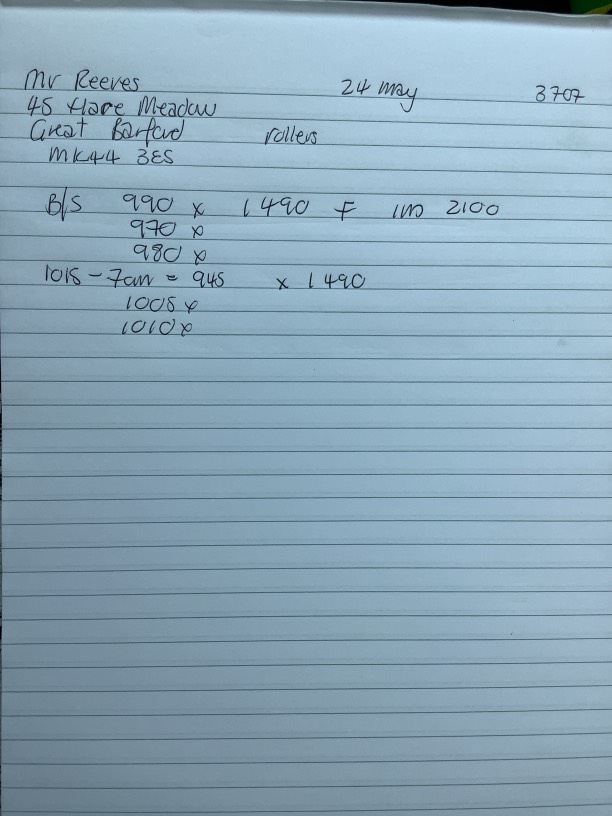 Mr Reeves 24 may 3707
45 Hare Meadow
Great Barford rollers
MK44 3ES
B/S 990 x 1490 F 1m 2100
970 x
980 x
1015 - 7cm = 945 x 1490
1005 x
1010 x